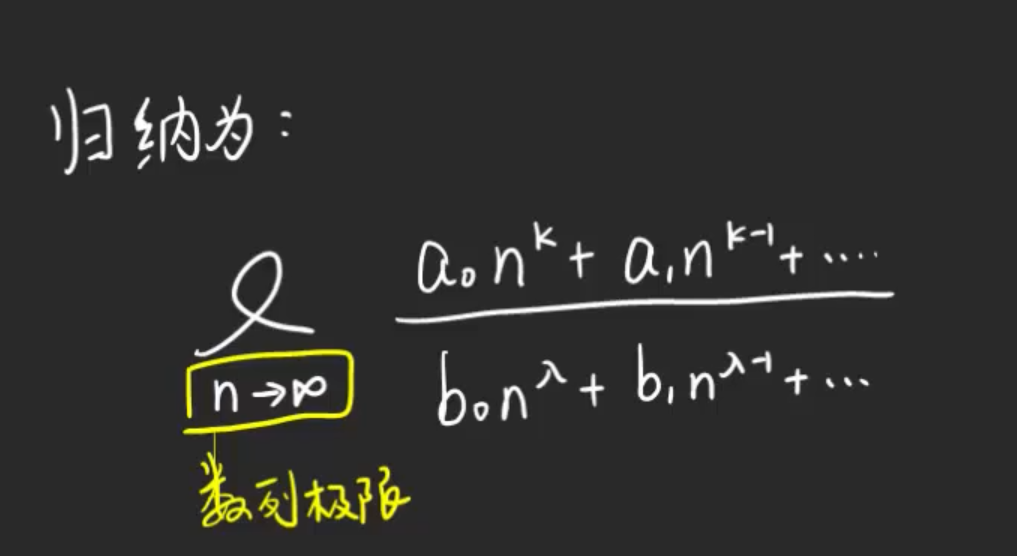 归纳为：
ℓ a₀n^k + a₁n^(k-1) + ....
n→∞ b₀n^λ + b₁n^(λ-1) + ...
数列极限